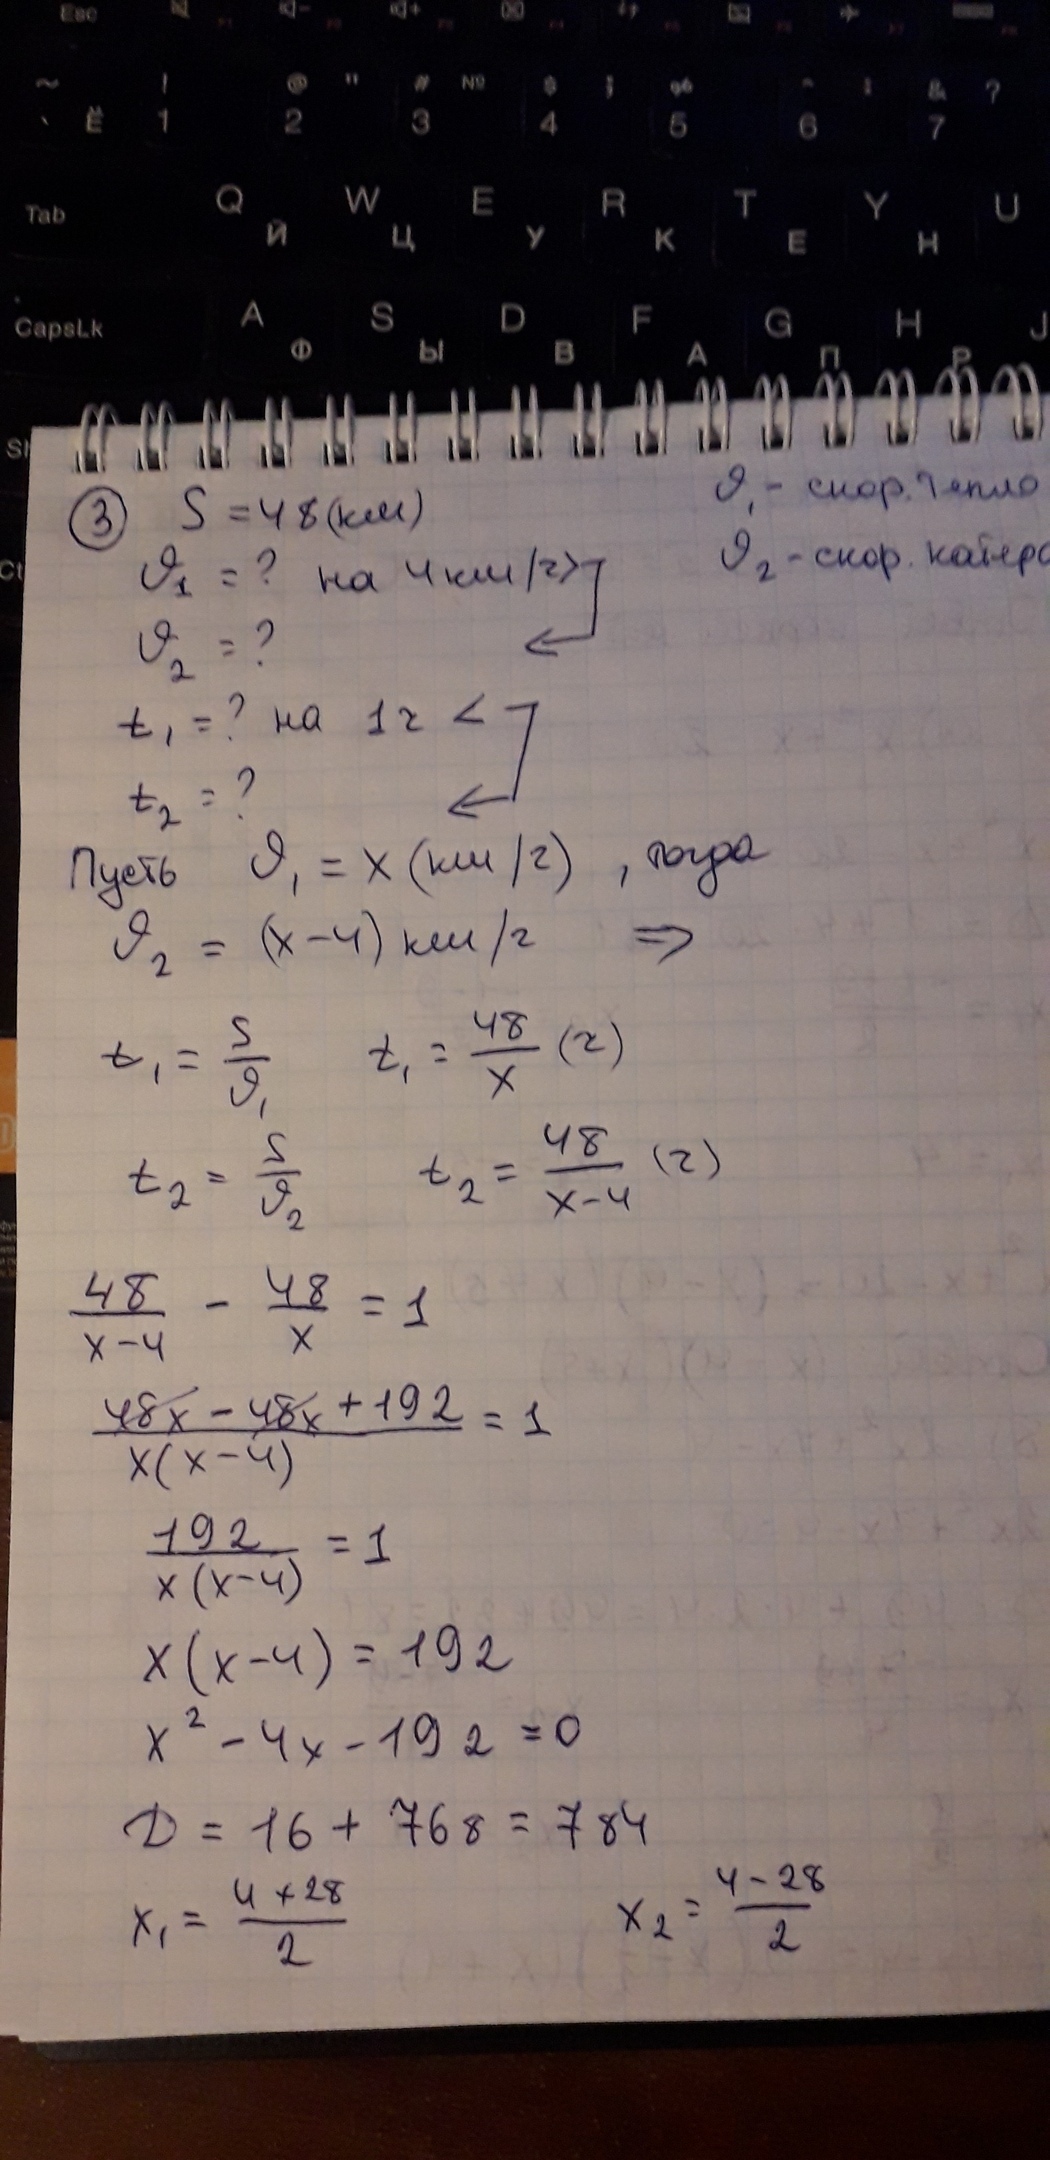 Esc
~ ! @ " # № $ ; % ^ : & ?
` Ё 1 2 3 4 5 6 7
Tab Q Й W Ц E У R К T Е Y Н U
CapsLk A Ф S Ы D В F А G П H Р J
③ S = 48 (км)
ϑ₁ - скор. тепло
ϑ₁ = ? на 4 км/ч >
ϑ₂ - скор. катера
ϑ₂ = ?
t₁ = ? на 1 ч <
t₂ = ?
Пусть ϑ₁ = x (км/ч), тогда
ϑ₂ = (x-4) км/ч ⇒
t₁ = S/ϑ₁ t₁ = 48/x (ч)
t₂ = S/ϑ₂ t₂ = 48/(x-4) (ч)
48/(x-4) - 48/x = 1
(48x - 48x + 192)/(x(x-4)) = 1
192/(x(x-4)) = 1
x(x-4) = 192
x² - 4x - 192 = 0
D = 16 + 768 = 784
x₁ = (4+28)/2 x₂ = (4-28)/2